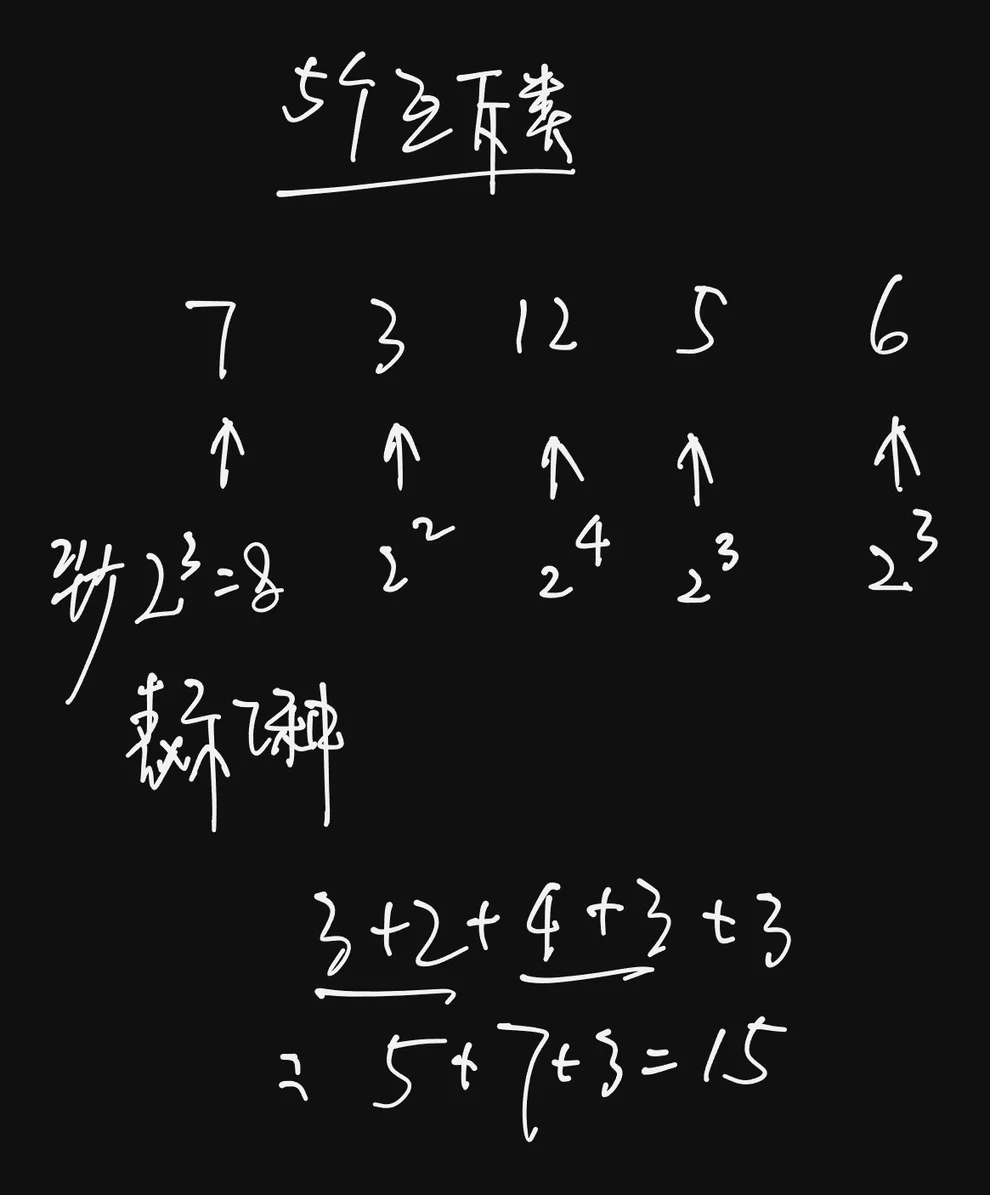 5个互斥类
7 3 12 5 6
↑ ↑ ↑ ↑ ↑
2³=8 2² 2⁴ 2³ 2³
表示7种
3+2+4+3+3
= 5+7+3=15